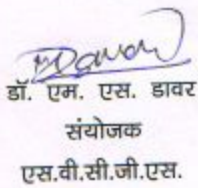 डॉ. एम. एस. डावर
संयोजक
एस.वी.सी.जी.एस.